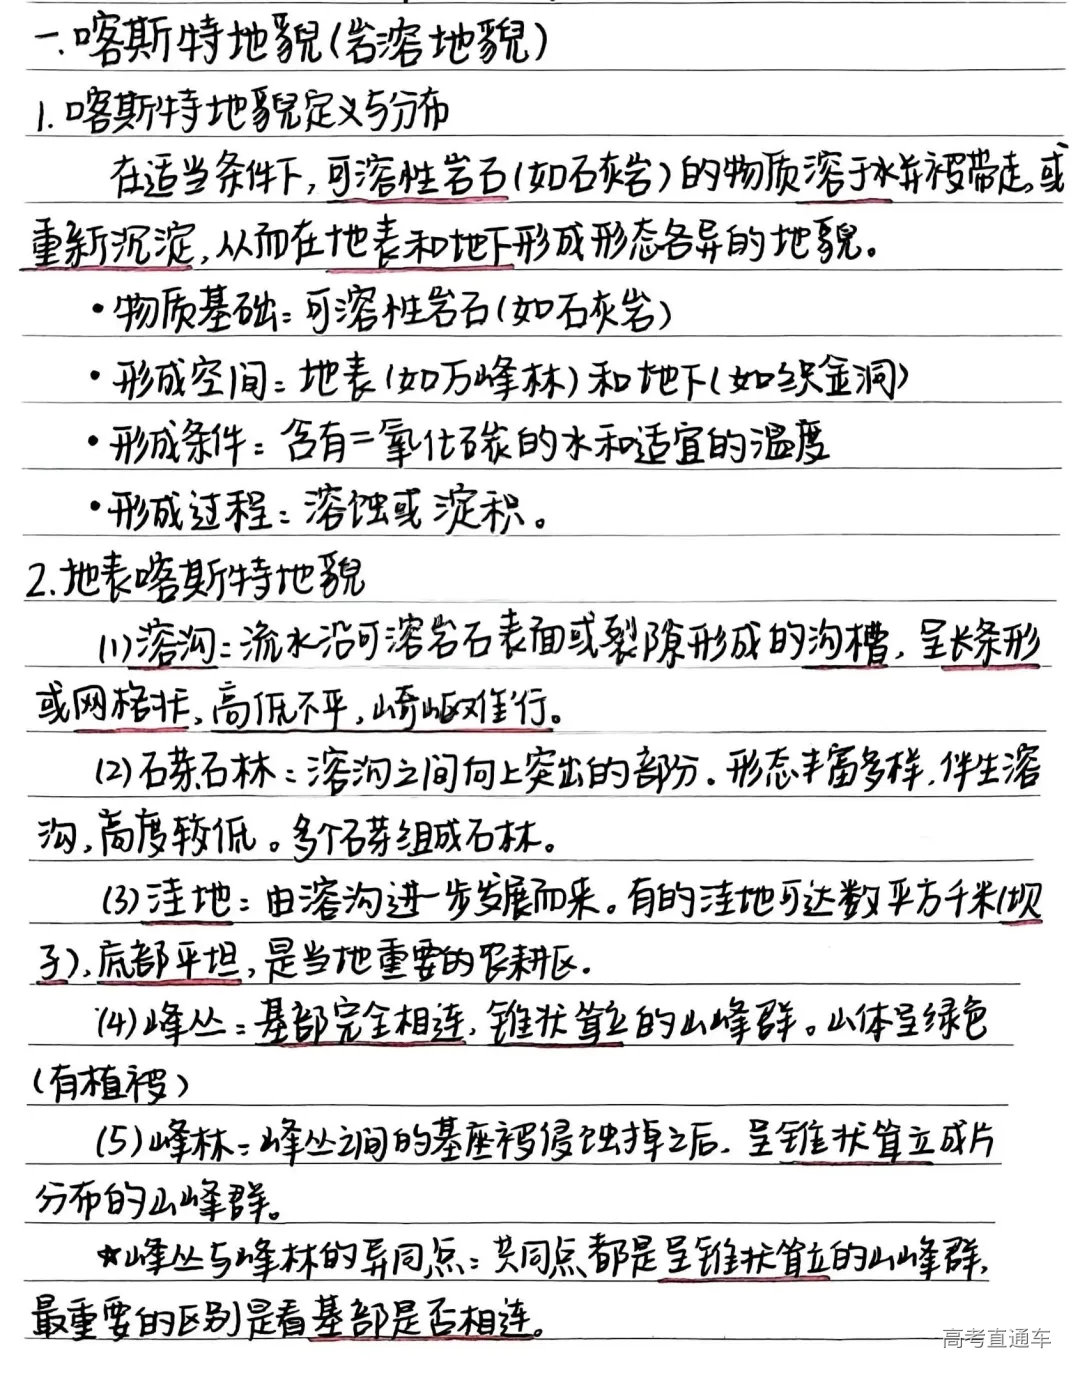 一.喀斯特地貌(岩溶地貌)
1.喀斯特地貌定义与分布
在适当条件下,可溶性岩石(如石灰岩)的物质溶于水并被带走,或
重新沉淀,从而在地表和地下形成形态各异的地貌。
•物质基础:可溶性岩石(如石灰岩)
•形成空间:地表(如万峰林)和地下(如织金洞)
•形成条件:含有二氧化碳的水和适宜的温度
•形成过程:溶蚀或淀积。
2.地表喀斯特地貌
(1)溶沟:流水沿可溶岩石表面或裂隙形成的沟槽,呈长条形
或网格状,高低不平,崎岖难行。
(2)石芽石林:溶沟之间向上突出的部分.形态丰富多样,伴生溶
沟,高度较低。多个石芽组成石林。
(3)洼地:由溶沟进一步发展而来。有的洼地可达数平方千米(坝
子),底部平坦,是当地重要的农耕区.
(4)峰丛:基部完全相连,锥状耸立的山峰群。山体呈绿色
(有植被)
(5)峰林:峰丛之间的基座被侵蚀掉之后,呈锥状耸立成片
分布的山峰群。
★峰丛与峰林的异同点:共同点都是呈锥状耸立的山峰群,
最重要的区别是看基部是否相连。
高考直通车